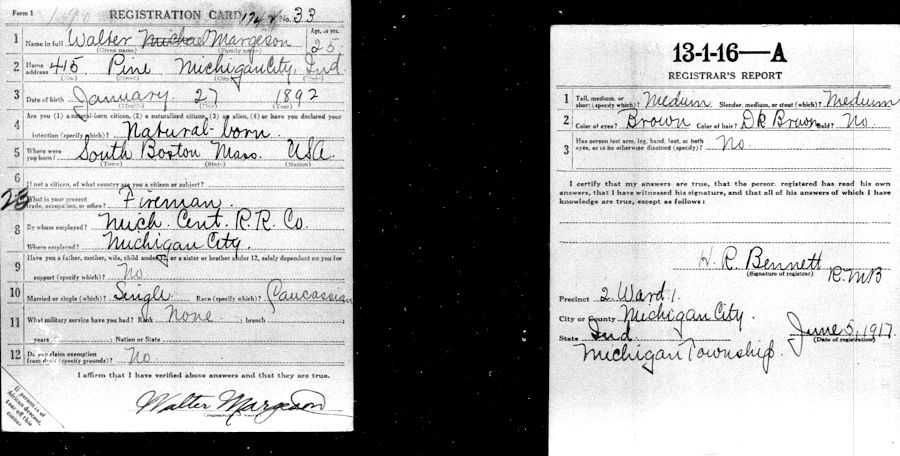 Form 1 REGISTRATION CARD No. 33
1 Name in full Walter Michael Margeson Age, in yrs. 25
(Given name) (Family name)
2 Home address 415 Pine Michigan City, Ind
(No.) (Street) (City) (State)
3 Date of birth January 27 1892
(Month) (Day) (Year)
Are you (1) a natural-born citizen, (2) a naturalized citizen, (3) an alien, (4) or have you declared your
4 intention (specify which)? Natural-born
5 Where were you born? South Boston Mass. USA.
(Town) (State) (Nation)
6 If not a citizen, of what country are you a citizen or subject?
25 What is your present trade, occupation, or office? Fireman.
8 By whom employed? Mich. Cent. R. R. Co.
Where employed? Michigan City.
9 Have you a father, mother, wife, child under 12, or a sister or brother under 12, solely dependent on you for
support (specify which)? No
10 Married or single (which)? Single Race (specify which)? Caucassian
11 What military service have you had? Rank None ; branch ;
years ; Nation or State
12 Do you claim exemption from draft (specify grounds)? No.
I affirm that I have verified above answers and that they are true.
Walter Margeson
If person is of
African descent,
tear off this
corner
13-1-16—A
REGISTRAR'S REPORT
1 Tall, medium, or short (specify which)? Medium Slender, medium, or stout (which)? Medium
2 Color of eyes? Brown Color of hair? DK Brown Bald? No.
3 Has person lost arm, leg, hand, foot, or both eyes, or is he otherwise disabled (specify)? No.
I certify that my answers are true, that the person registered has read his own
answers, that I have witnessed his signature, and that all of his answers of which I have
knowledge are true, except as follows:
H. R. Bennett
(Signature of registrar) R.M.B
Precinct 2 Ward 1.
City or County Michigan City.
State Ind June 5, 1917
(Date of registration)
Michigan Township.